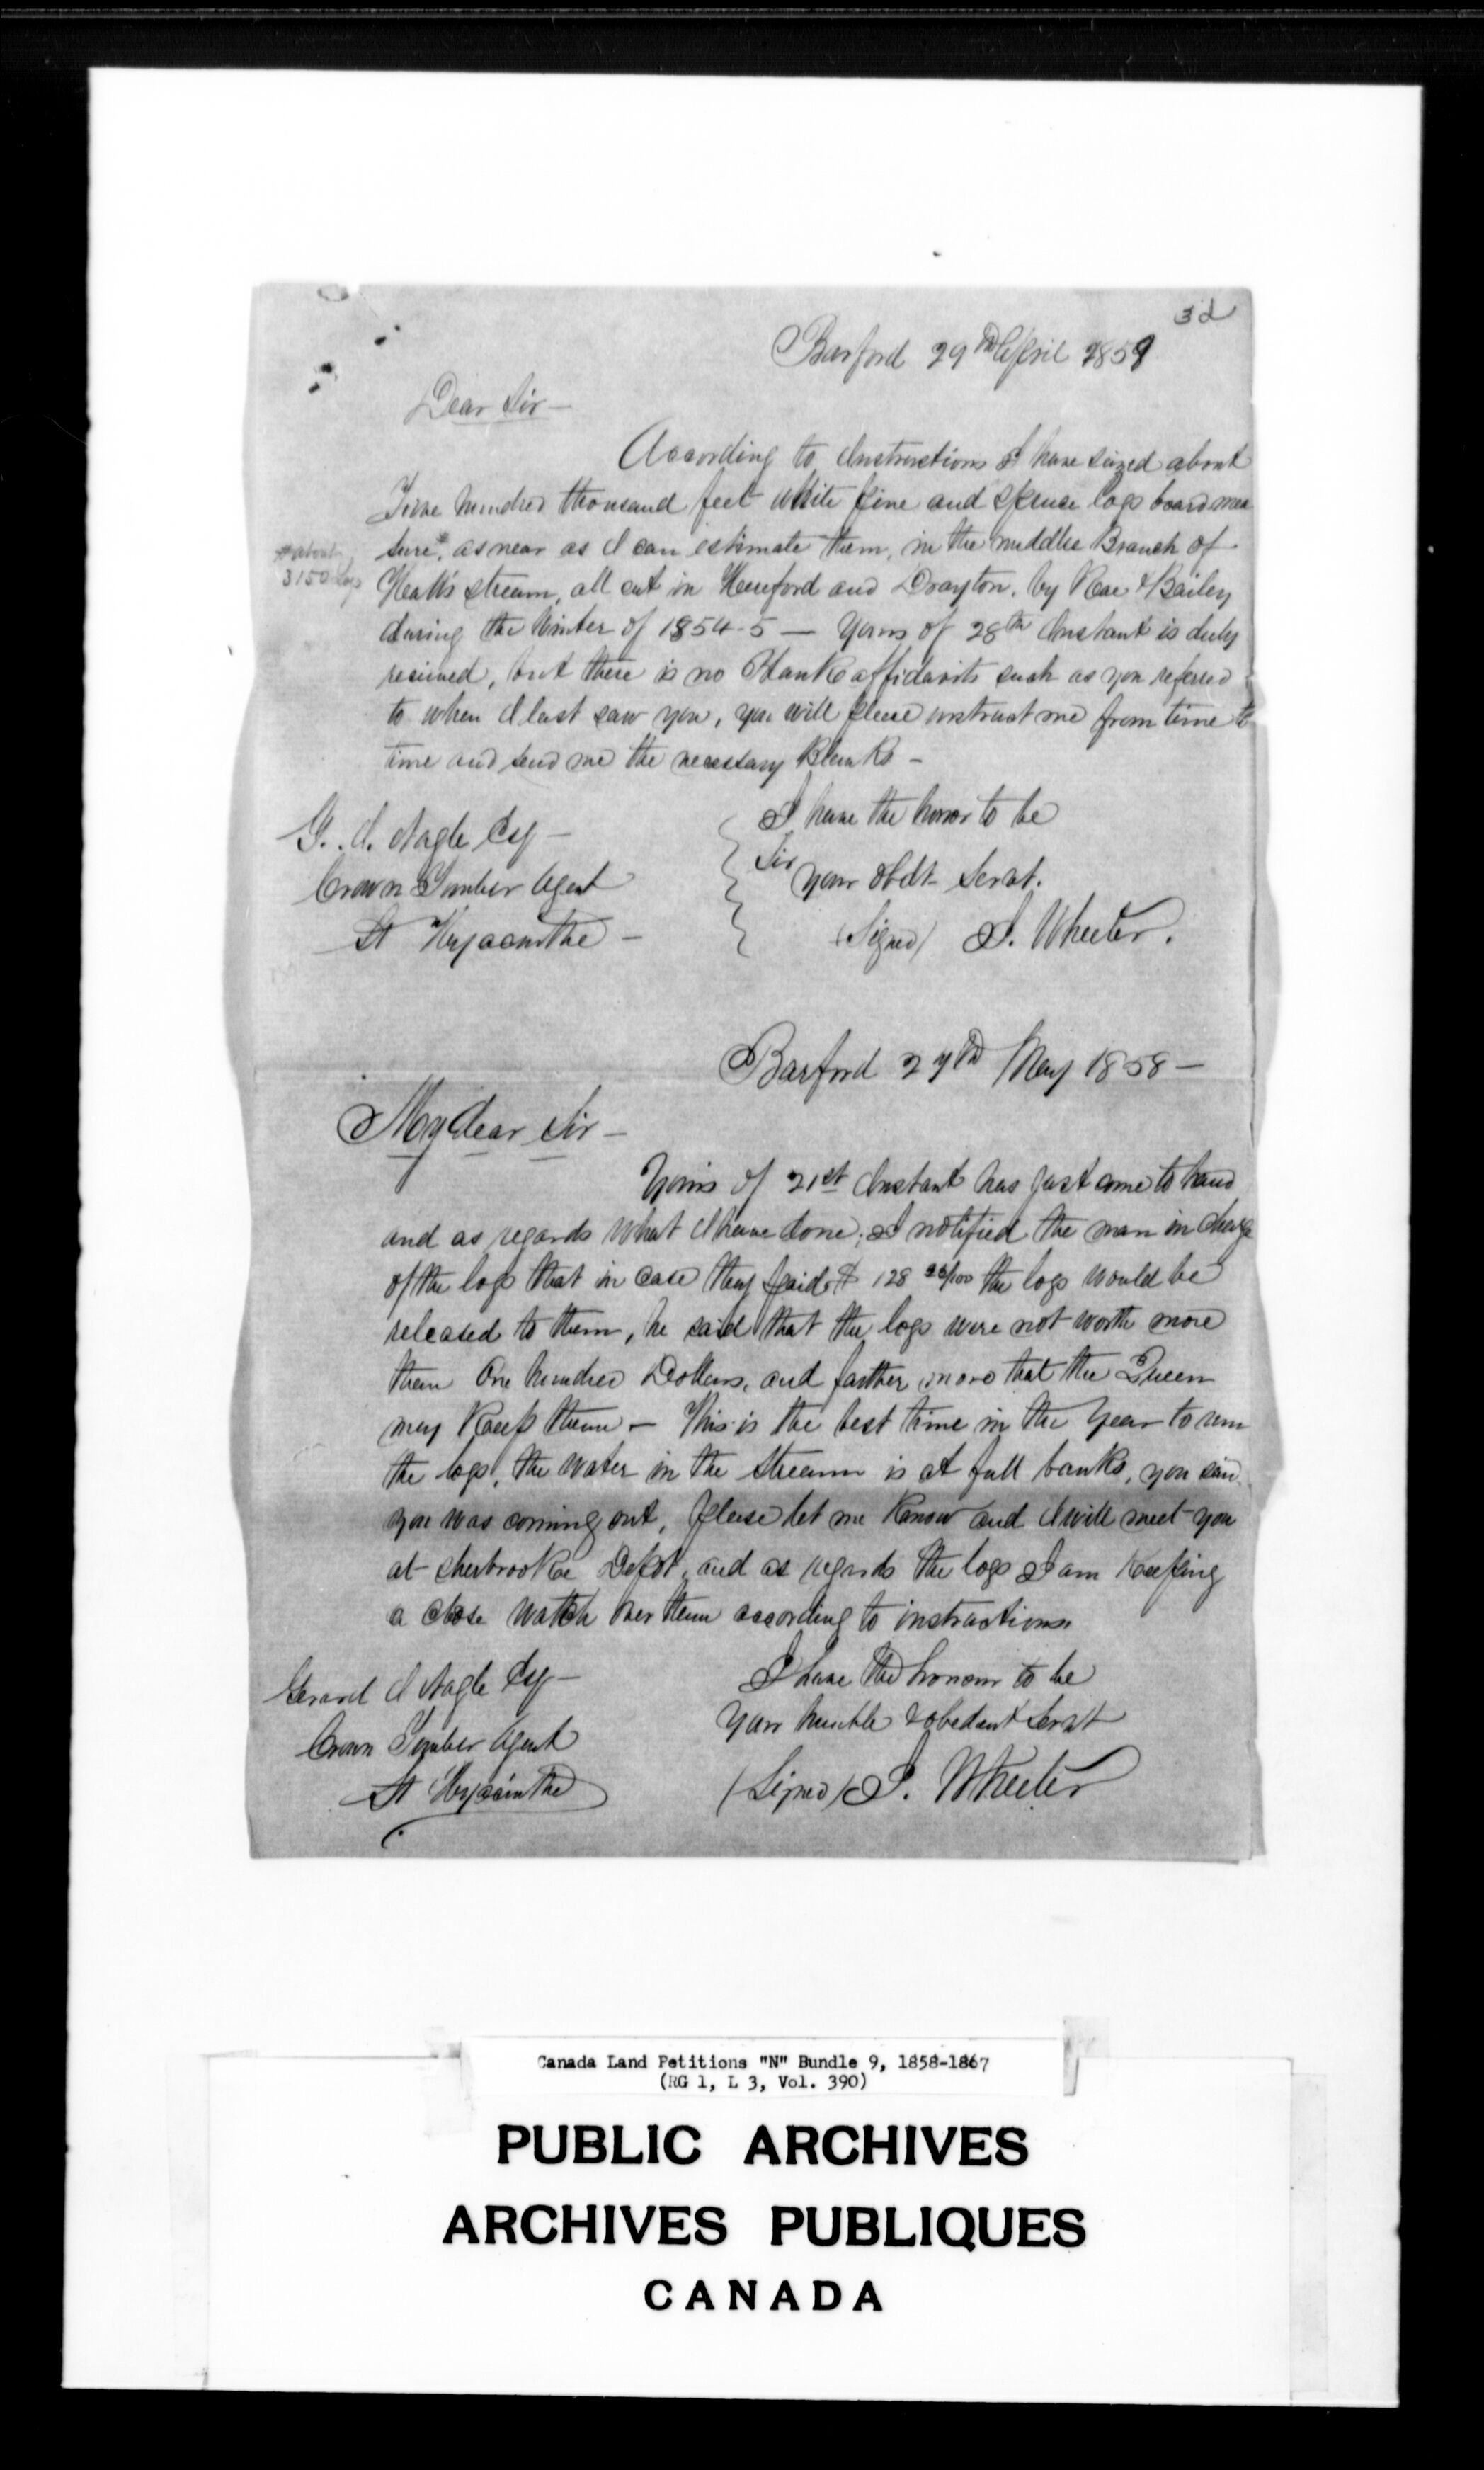 3d
Barford 29th April 1858
Dear Sir —
According to Instructions I have seized about
Five hundred thousand feet white pine and Spruce logs board mea
sure*, as near as I can estimate them, in the middle Branch of
* about
3150 Logs
Heath's stream, all cut in Hereford and Drayton, by Rose & Bailey
during the Winter of 1854-5 — Yours of 28th Instant is duly
received, but there is no Blank affidavits such as you refered
to when I last saw you, you will please instruct me from time to
time and send me the necessary Blanks —
I have the honor to be
Sir
your obdt Servt.
(Signed) J. Wheeler.
G. J. Nagle Esq —
Crown Timber Agent
St Hyacinthe —
Barford 27th May 1858 —
My dear Sir —
Yours of 21st Instant has just come to hand
and as regards what I have done, I notified the man in charge
of the logs that in case they paid $ 128 /100 the logs would be
released to them, he said that the logs were not worth more
than One hundred Dollars, and farther more that the Queen
may Keep them — This is the best time in the Year to run
the logs, the water in the Stream is at full banks, you said
you was coming out, please let me Know and I will meet you
at Sherbrooke Depot, and as regards the logs I am Keeping
a close watch over them according to instructions
I have the honour to be
Your humble & obedient Servt
(Signed) J. Wheeler
Gerard J Nagle Esq —
Crown Timber Agent
St Hyacinthe
Canada Land Petitions "N" Bundle 9, 1858-1867
(RG 1, L 3, Vol. 390)
PUBLIC ARCHIVES
ARCHIVES PUBLIQUES
CANADA